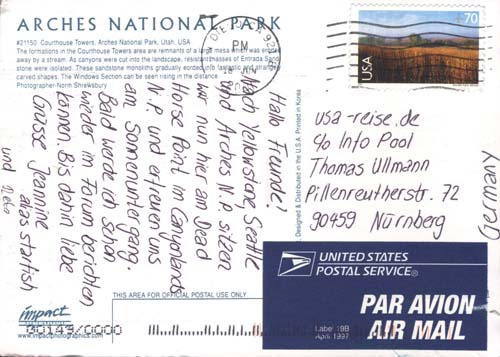 ARCHES NATIONAL PARK
#21150 Courthouse Towers, Arches National Park, Utah, USA
The formations in the Courthouse Towers area are remnants of a large mesa which was eroded
away by a stream. As canyons were cut into the landscape, resistant masses of Entrada Sand-
stone were isolated. These sandstone monoliths gradually eroded into fantastic and strangely
carved shapes. The Windows Section can be seen rising in the distance.
Photographer-Norm Shrewsbury
PM
70
USA
Hallo Freunde!
Nach Yellowstone, Seattle
und Arches N.P. sitzen
wir nun hier am Dead
Horse Point im Canyonlands
N.P. und erfreuen uns
am Sonnenuntergang.
Bald werde ich schon
wieder im Forum berichten
können. Bis dahin liebe
Grüsse Jeannine
alias starfish
und
Designed & Distributed in the U.S.A. Printed in Korea
usa-reise.de
c/o Info Pool
Thomas Ullmann
Pillenreutherstr. 72
90459 Nürnberg
(Germany)
UNITED STATES
POSTAL SERVICE®
PAR AVION
AIR MAIL
Label 19B
April 1997
THIS AREA FOR OFFICIAL POSTAL USE ONLY
impact
www.impactphotographics.com
90149/0000